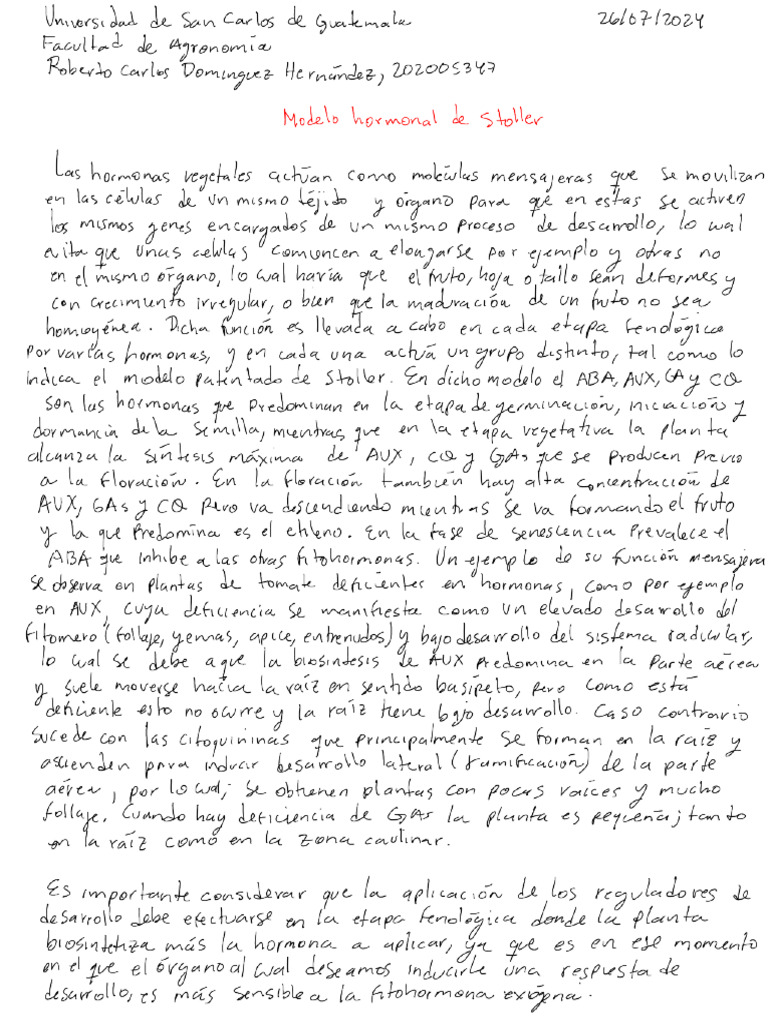 Universidad de San Carlos de Guatemala 26/07/2024
Facultad de Agronomía
Roberto Carlos Dominguez Hernández, 202005347
Modelo hormonal de Stoller
Las hormonas vegetales actúan como moléculas mensajeras que se movilizan
en las células de un mismo tejido y órgano para que en estas se activen
los mismos genes encargados de un mismo proceso de desarrollo, lo cual
evita que unas células comiencen a elongarse por ejemplo y otras no
en el mismo órgano, lo cual haría que el fruto, hoja o tallo sean deformes y
con crecimiento irregular, o bien que la maduración de un fruto no sea
homogénea. Dicha función es llevada a cabo en cada etapa fenológica
por varias hormonas, y en cada una actúa un grupo distinto, tal como lo
indica el modelo patentado de Stoller. En dicho modelo el ABA, AUX, GA y CQ
son las hormonas que predominan en la etapa de germinación, iniciación y
dormancia de la semilla, mientras que en la etapa vegetativa la planta
alcanza la síntesis máxima de AUX, CQ y GAs que se producen previo
a la floración. En la floración también hay alta concentración de
AUX, GAs y CQ pero va descendiendo mientras se va formando el fruto
y la que predomina es el etileno. En la fase de senescencia prevalece el
ABA que inhibe a las otras fitohormonas. Un ejemplo de su función mensajera
se observa en plantas de tomate deficientes en hormonas, como por ejemplo
en AUX, cuya deficiencia se manifiesta como un elevado desarrollo del
fitomero (follaje, yemas, apice, entrenudos) y bajo desarrollo del sistema radicular,
lo cual se debe a que la biosíntesis de AUX predomina en la parte aérea
y suele moverse hacia la raíz en sentido basípeto, pero como está
deficiente esto no ocurre y la raíz tiene bajo desarrollo. Caso contrario
sucede con las citoquininas que principalmente se forman en la raíz y
ascienden para inducir desarrollo lateral (ramificación) de la parte
aérea, por lo cual, se obtienen plantas con pocas raíces y mucho
follaje. Cuando hay deficiencia de GAs la planta es pequeña, tanto
en la raíz como en la zona caulinar.
Es importante considerar que la aplicación de los reguladores de
desarrollo debe efectuarse en la etapa fenológica donde la planta
biosintetiza más la hormona a aplicar, ya que es en ese momento
en el que el órgano al cual deseamos inducirle una respuesta de
desarrollo, es más sensible a la fitohormona exógena.